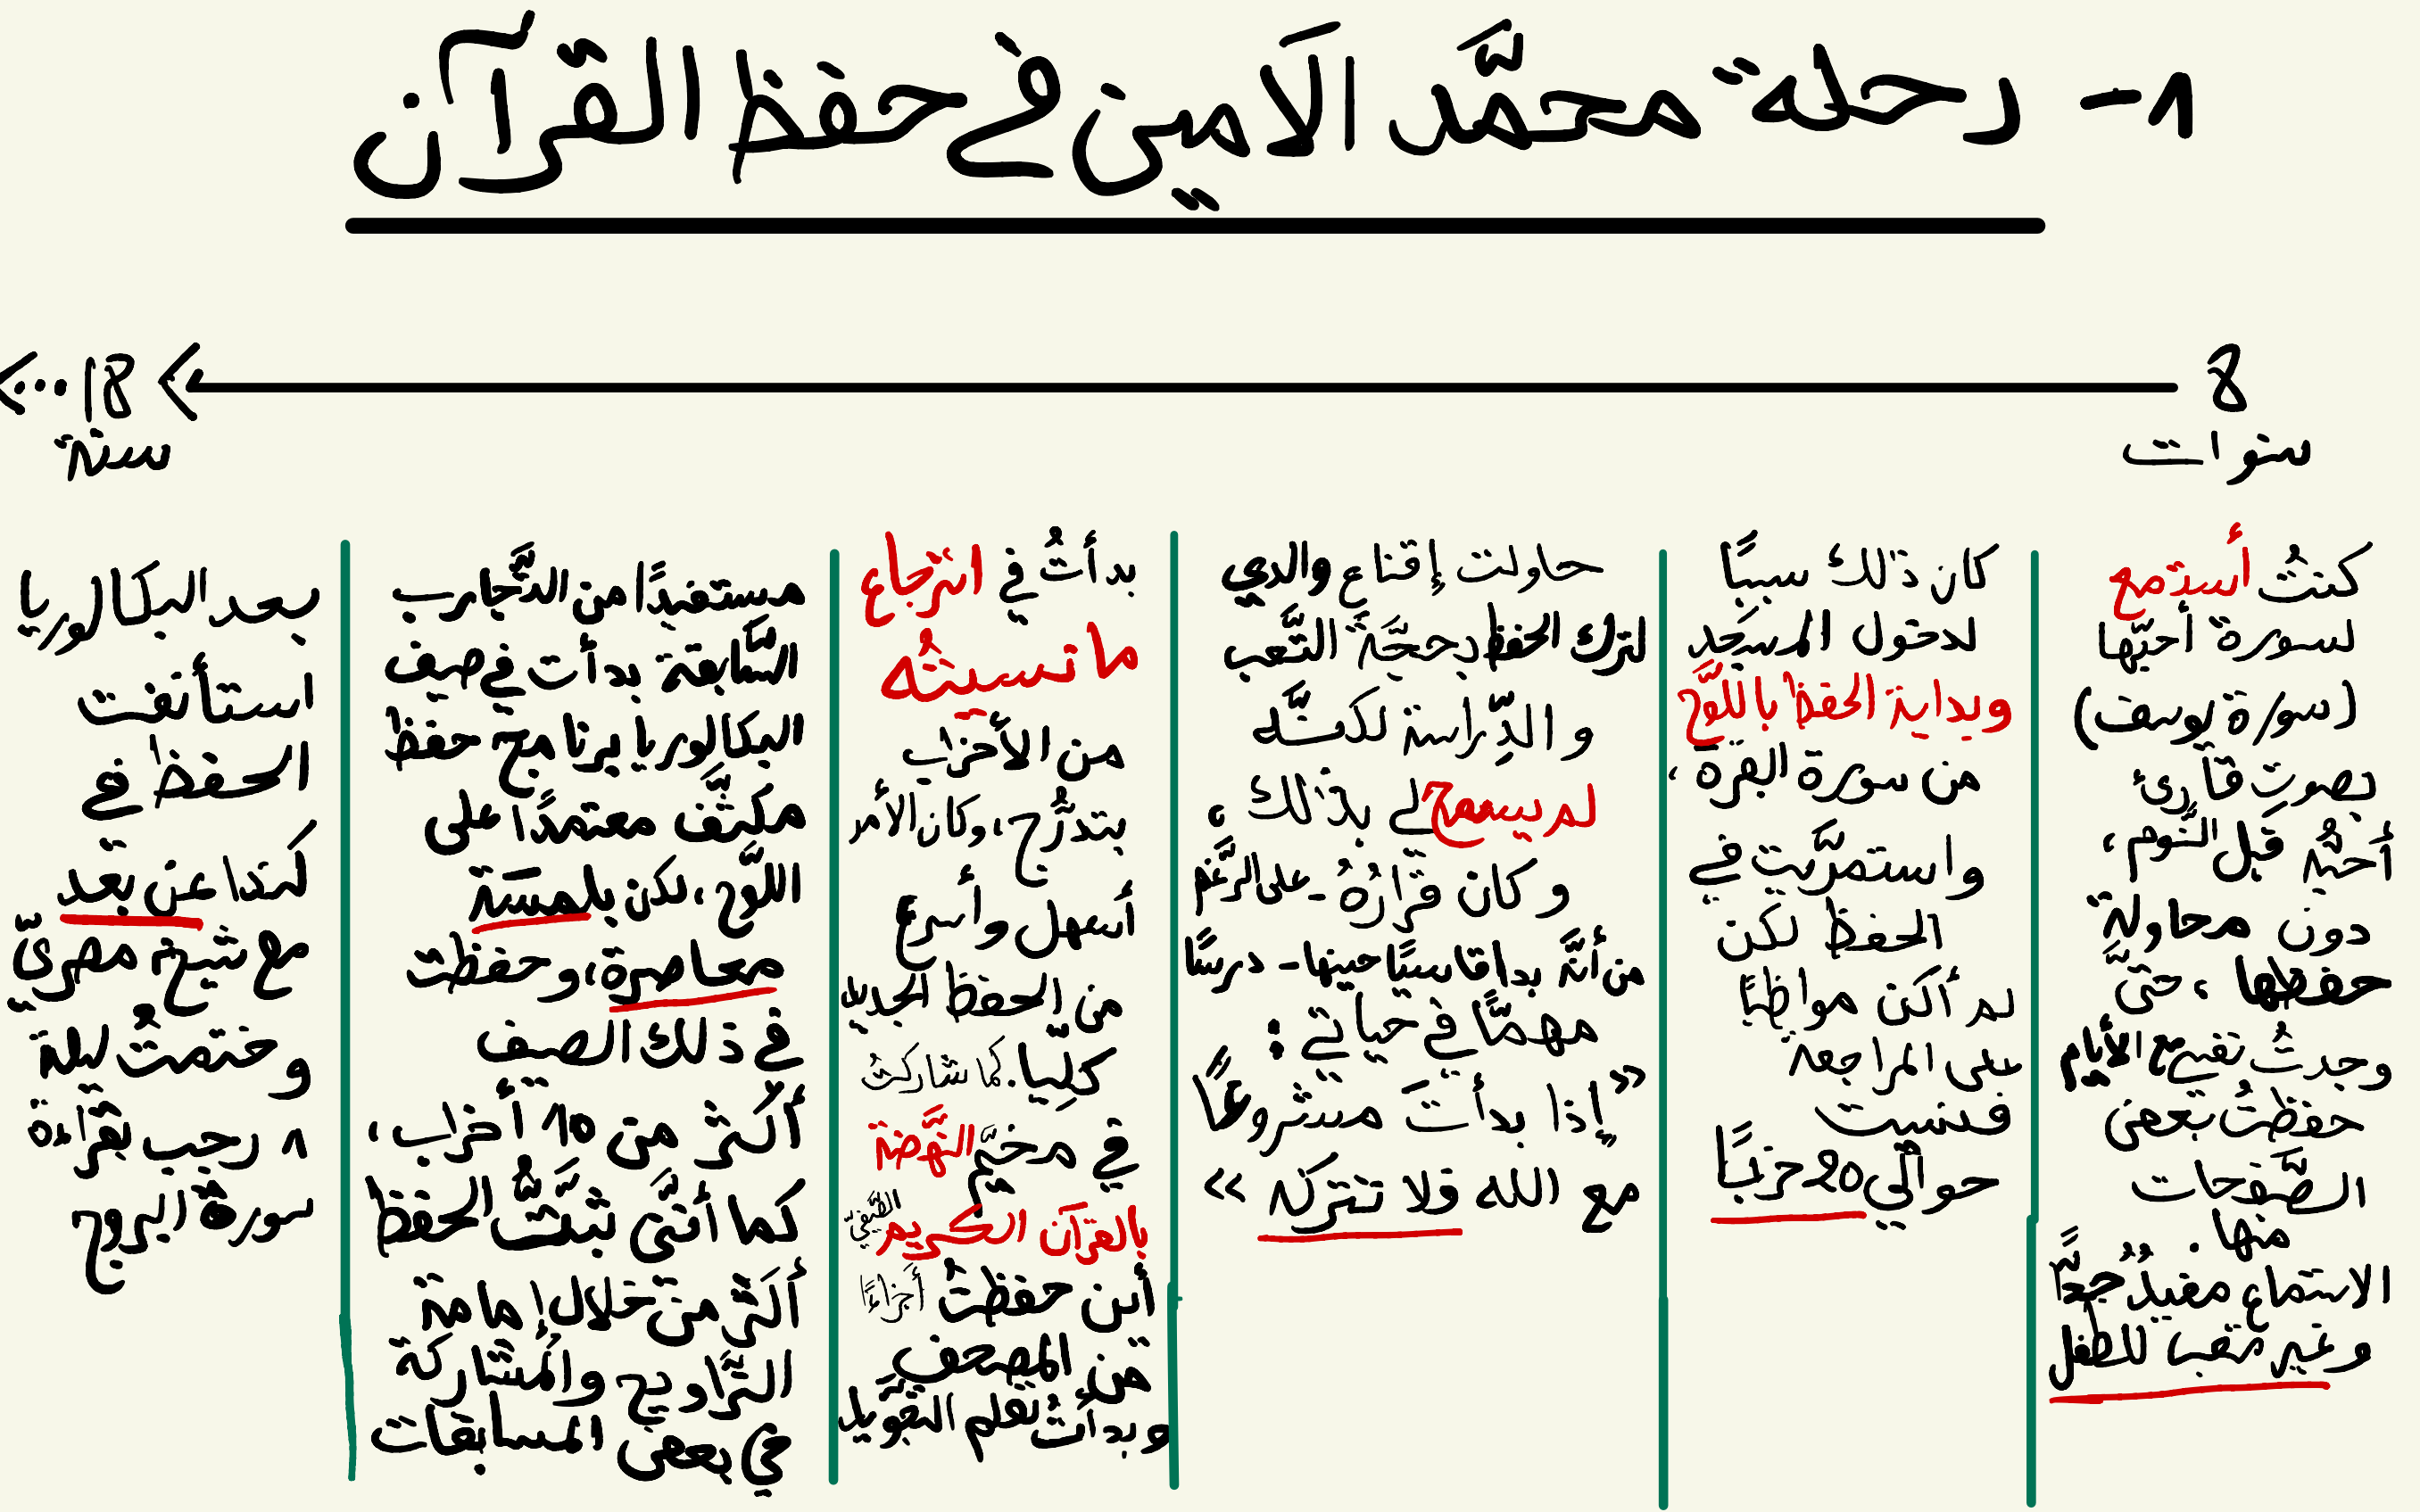 1- رحلة محمَّد الأمين في حفظ القرآن
8
سنوات
18 ...
سنة
كنتُ أستمع
لسورة أحبّها
(سورة يوسف)
بصوتِ قارئ
أحبُّه قبل النَّوم،
دون محاولة
حفظها، حتىَّ
وجدتُ نفسي مع الأيام
حفظتُ بعض
الصَّفحات
منها.
الاستماع مفيدٌ جدًّا
وغير متعب للطفل
كان ذلك سببًا
لدخول المسجد
وبداية الحفظ باللَّوح
من سورة البقرة،
واستمرَّيت في
الحفظ لكن
لم أكن مواظبًا
على المراجعة
فنسيت
حوالي 20 حزبًا
حاولت إقناع والدي
لترك الحفظ بحجَّة التَّعب
و الدِّراسة لكنَّه
لم يسمح لي بذلك،
و كان قرارُهُ - على الرَّغم
من أنَّه بدا قاسيًا حينها - درسًا
مهمًّا في حياتي:
"إذا بدأتَ مشروعًا
مع الله فلا تتركه"
بدأتُ في استرجاع
ما نسيتُه
من الأحزاب
بتدرُّج، وكان الأمر
أسهل وأسرع
من الحفظ الجديد
كلِّيا. كما شاركتُ
في مخيَّم النَّهضة
بالقرآن الكريم الصَّيفيّ
أين حفظتُ أجزاءً
من المصحف
وبدأتُ تعلم التجويد
مستفيدًا من التَّجارب
السَّابقة بدأت في صيف
البكالوريا برنامج حفظ
مكثَّف معتمدًا على
اللَّوح، لكن بلمسَة
معاصرة، وحفظت
في ذلك الصيف
أكثر من 10 أحزاب،
كما أنَّني ثبَّتُّ الحفظ
أكثر من خلال إمامة
التَّراويح والمُشاركة
في بعض المسابقات
بعد البكالوريا
استأنفت
الحفظ في
كندا عن بعد
مع شيخ مصريّ
وختمتُ ليلة
1 رجب بقراءة
سورة البروج